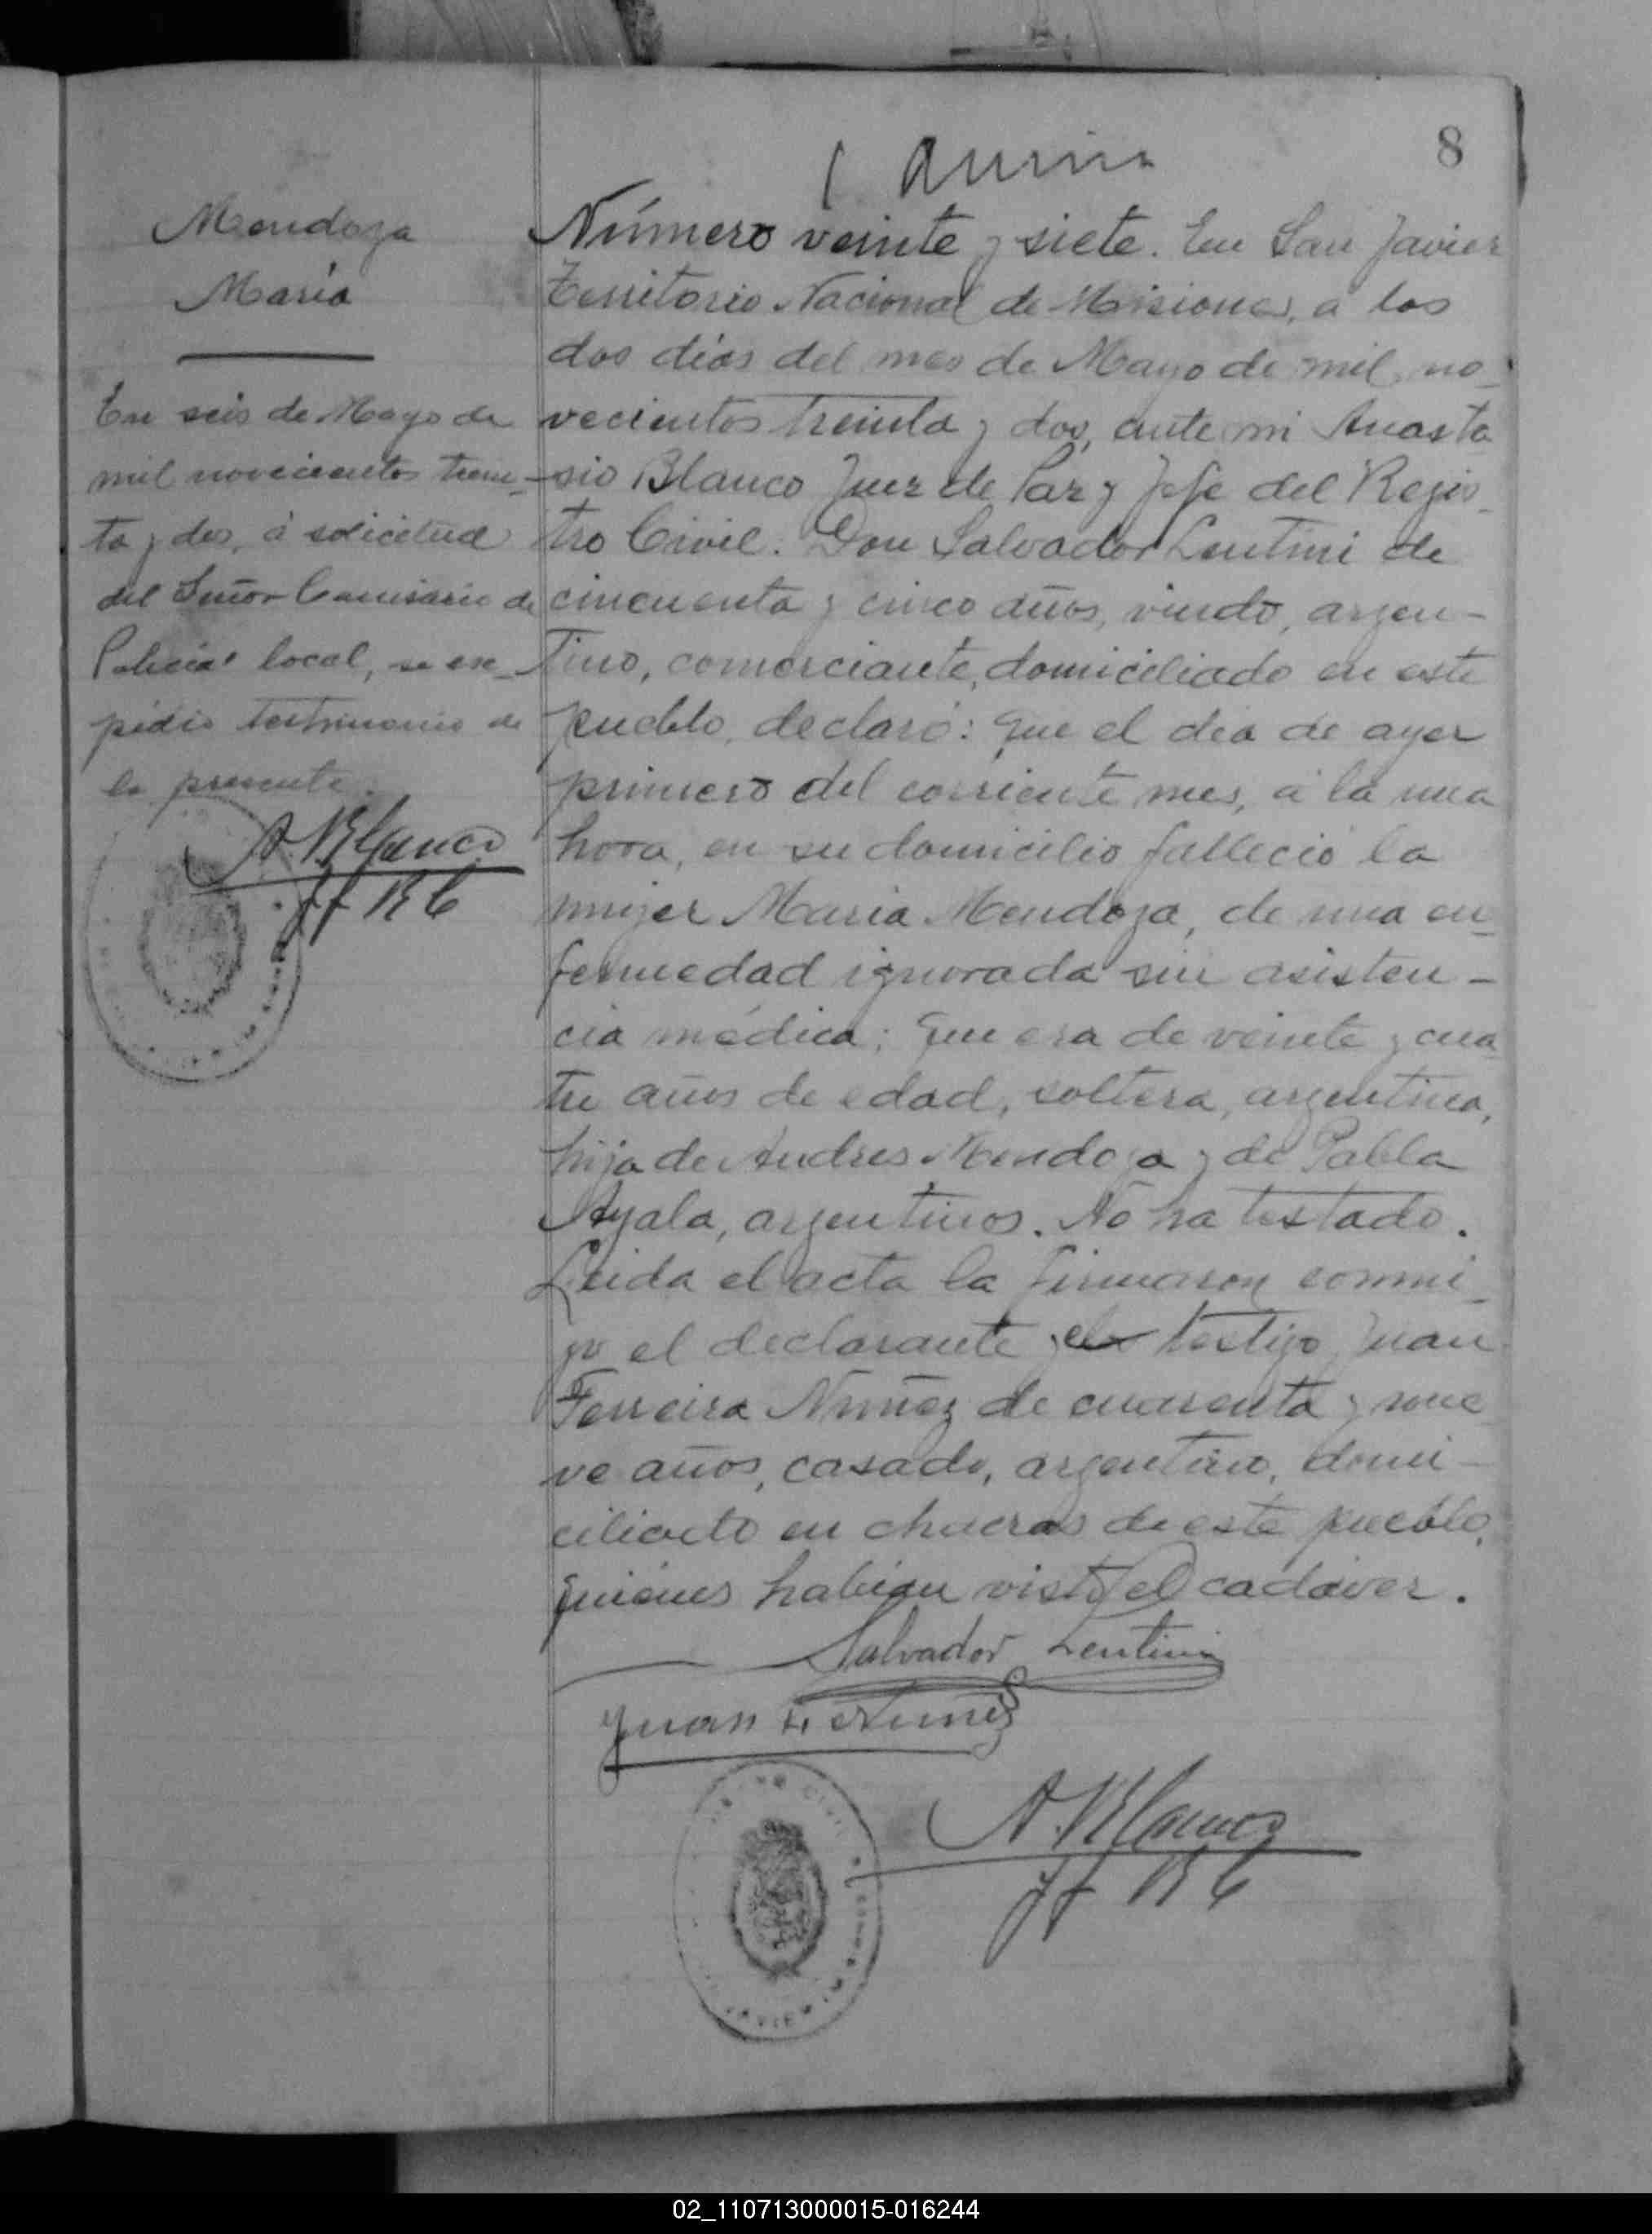 8
Mendoza
María
En seis de Mayo de
mil novecientos trein-
ta y dos, á solicitud
del Señor Comisario de
Policía local, se ex-
pidió testimonio de
la presente.
A. Blanco
Jf R C
Número veinte y siete. En San Javier
Territorio Nacional de Misiones, a los
dos días del mes de Mayo de mil no-
vecientos treinta y dos, ante mi Anasta
sio Blanco Juez de Paz y Jefe del Regis-
tro Civil: Don Salvador Lentini de
cincuenta y cinco años, viudo, argen-
tino, comerciante, domiciliado en este
pueblo, declaró: Que el día de ayer
primero del corriente mes, a la una
hora, en su domicilio falleció la
mujer Maria Mendoza, de una en-
fermedad ignorada sin asisten-
cia médica; Que era de veinte y cua
tro años de edad, soltera, argentina,
hija de Andres Mendoza y de Pabla
Ayala, argentinos. No ha testado.
Leida el acta la firmaron conmi-
go el declarante y el testigo Juan
Ferreira Nuñez de cuarenta y nue
ve años, casado, argentino, domi-
ciliado en chacras de este pueblo,
quienes habían visto el cadáver.
Salvador Lentini
Juan F. Nuñez
A. Blanco
Jf R C
02_110713000015-016244